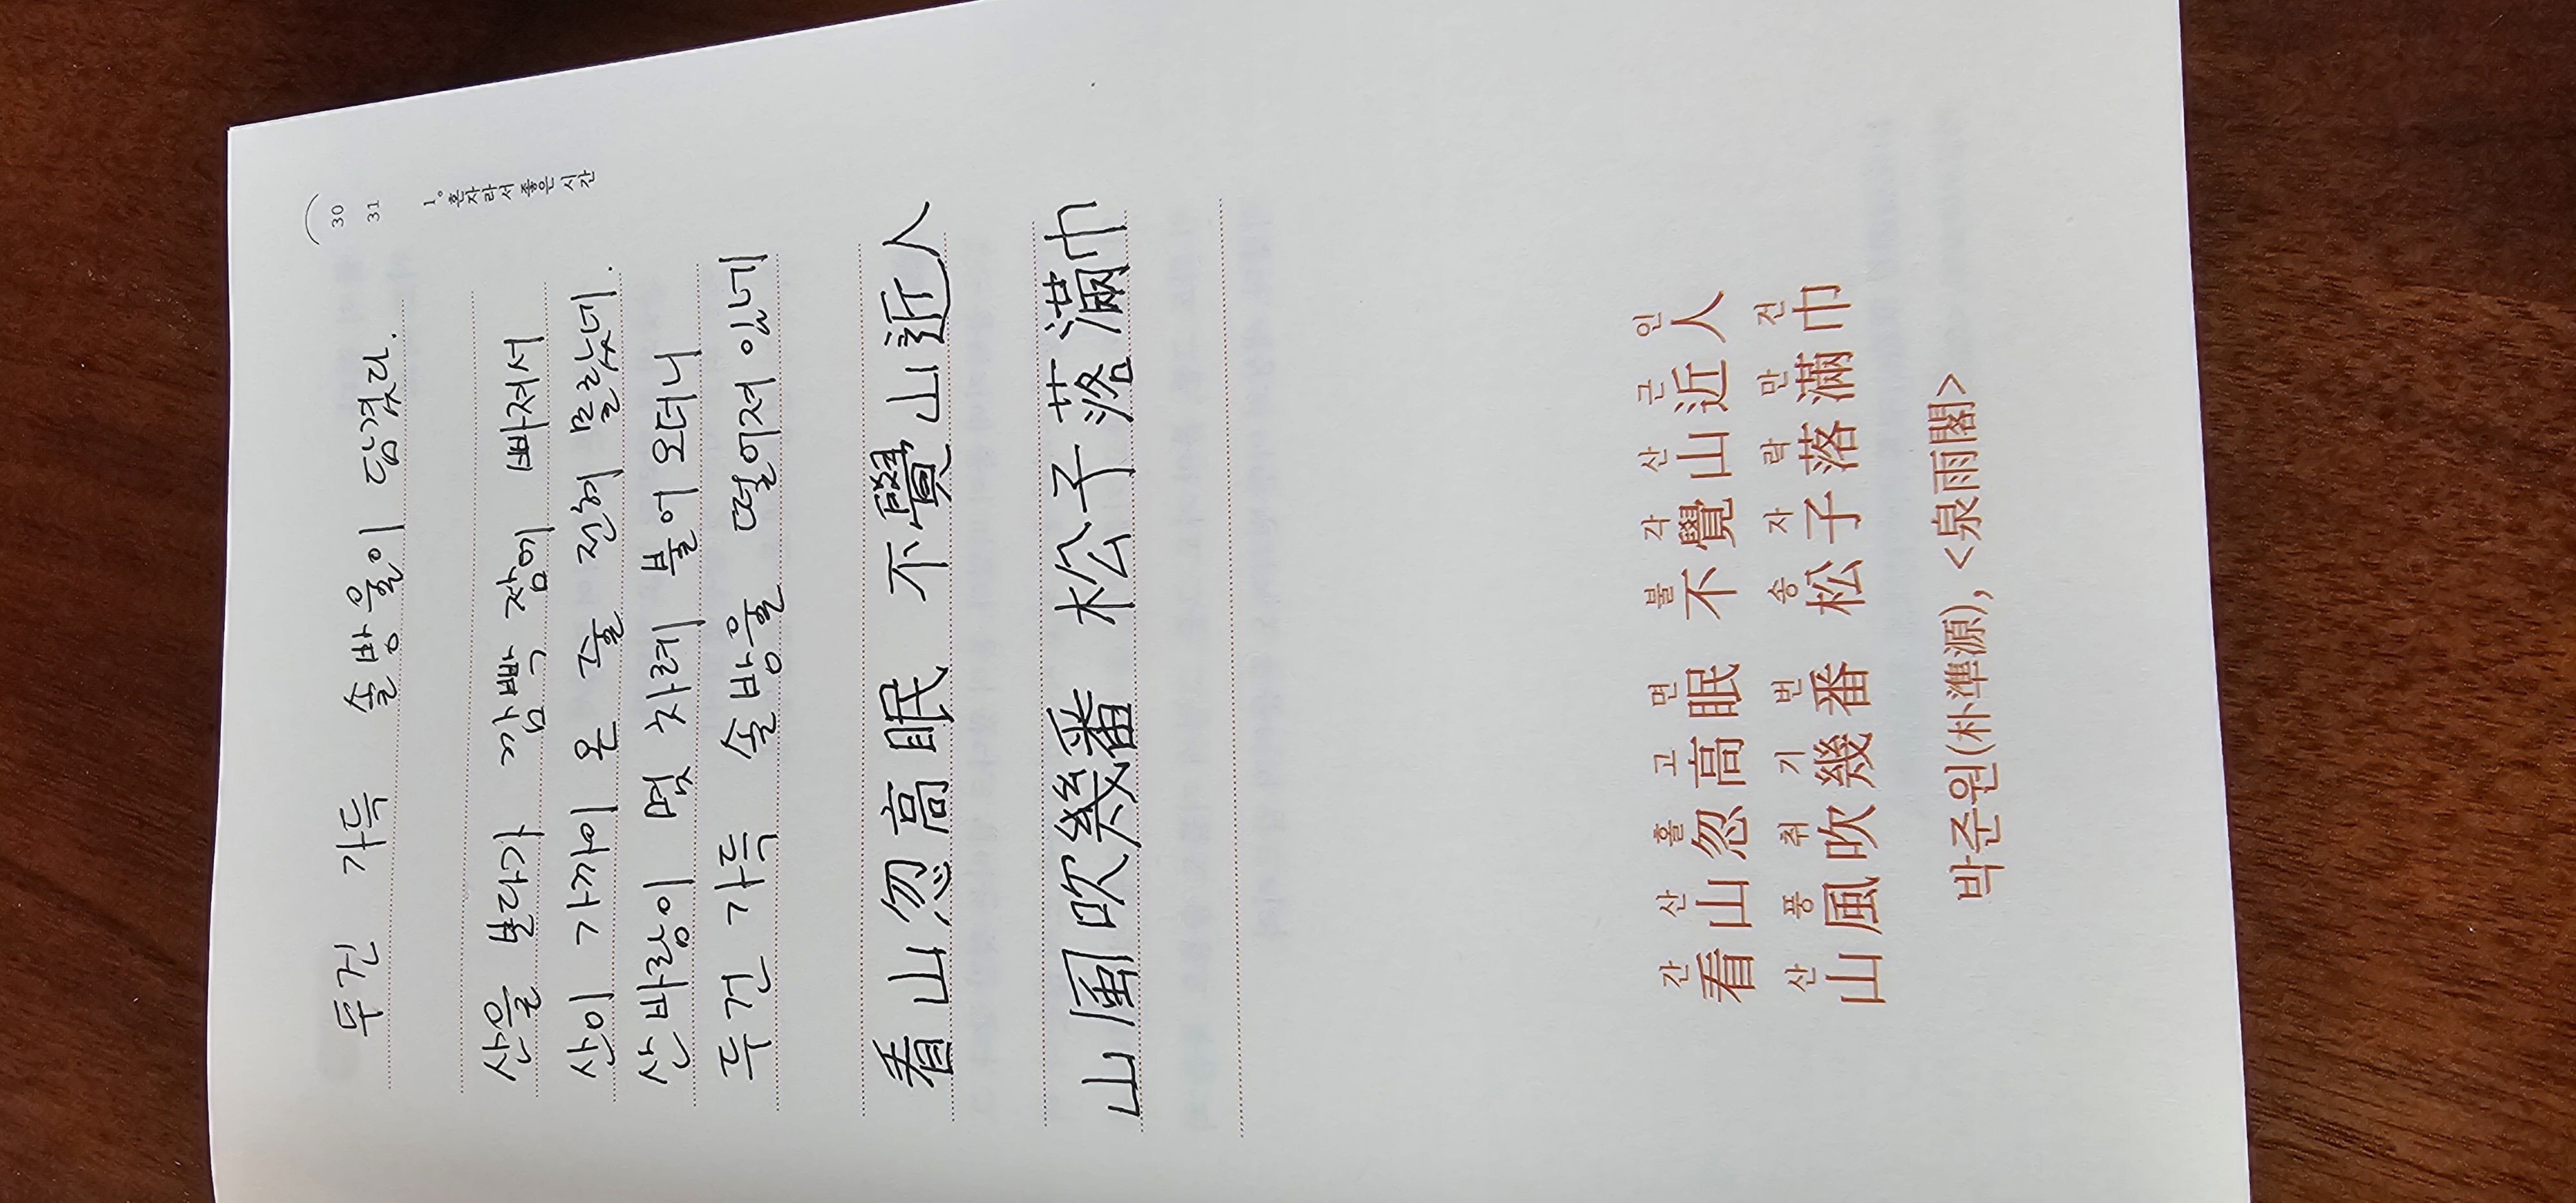 30
31
1。혼자라서 좋은 시간
두건 가득 솔방울이 담겼다.
산을 보다가 깜빡 잠에 빠져서
산이 가까이 온 줄 전혀 몰랐네.
산바람이 몇 차례 불어오더니
두건 가득 솔방울 떨어져 있네
看山忽高眠 不覺山近人
山風吹幾番 松子落滿巾
간 산 홀 고 면 불 각 산 근 인
看山忽高眠 不覺山近人
산 풍 취 기 번 송 자 락 만 건
山風吹幾番 松子落滿巾
박준원(朴準源), <泉雨閣>